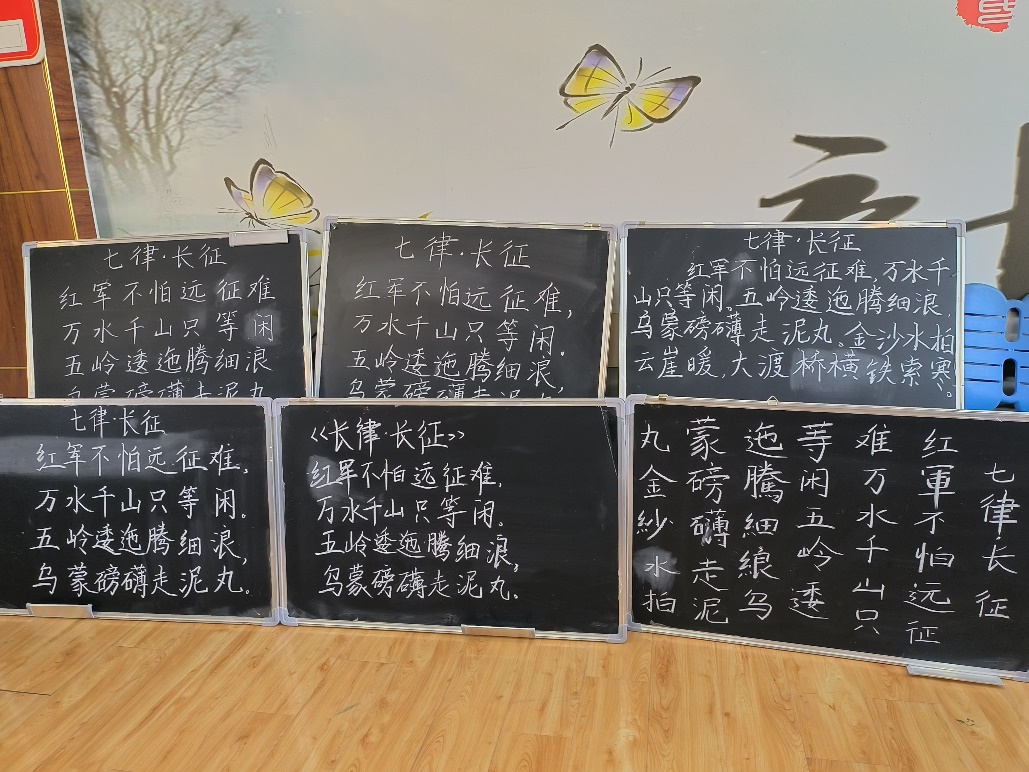 七律·长征
红军不怕远征难
万水千山只等闲
五岭逶迤腾细浪
乌蒙磅礴走泥丸
七律·长征
红军不怕远征难，
万水千山只等闲。
五岭逶迤腾细浪，
乌蒙磅礴走泥丸
七律·长征
红军不怕远征难，万水千
山只等闲，五岭逶迤腾细浪，
乌蒙磅礴走泥丸。金沙水拍
云崖暖，大渡桥横铁索寒。
七律·长征
红军不怕远征难，
万水千山只等闲。
五岭逶迤腾细浪，
乌蒙磅礴走泥丸。
《长律·长征》
红军不怕远征难，
万水千山只等闲。
五岭逶迤腾细浪，
乌蒙磅礴走泥丸。
七律·长征
红軍不怕远征
难万水千山只
等闲五岭逶
迤騰細浪乌
蒙磅礴走泥
丸金紗水拍